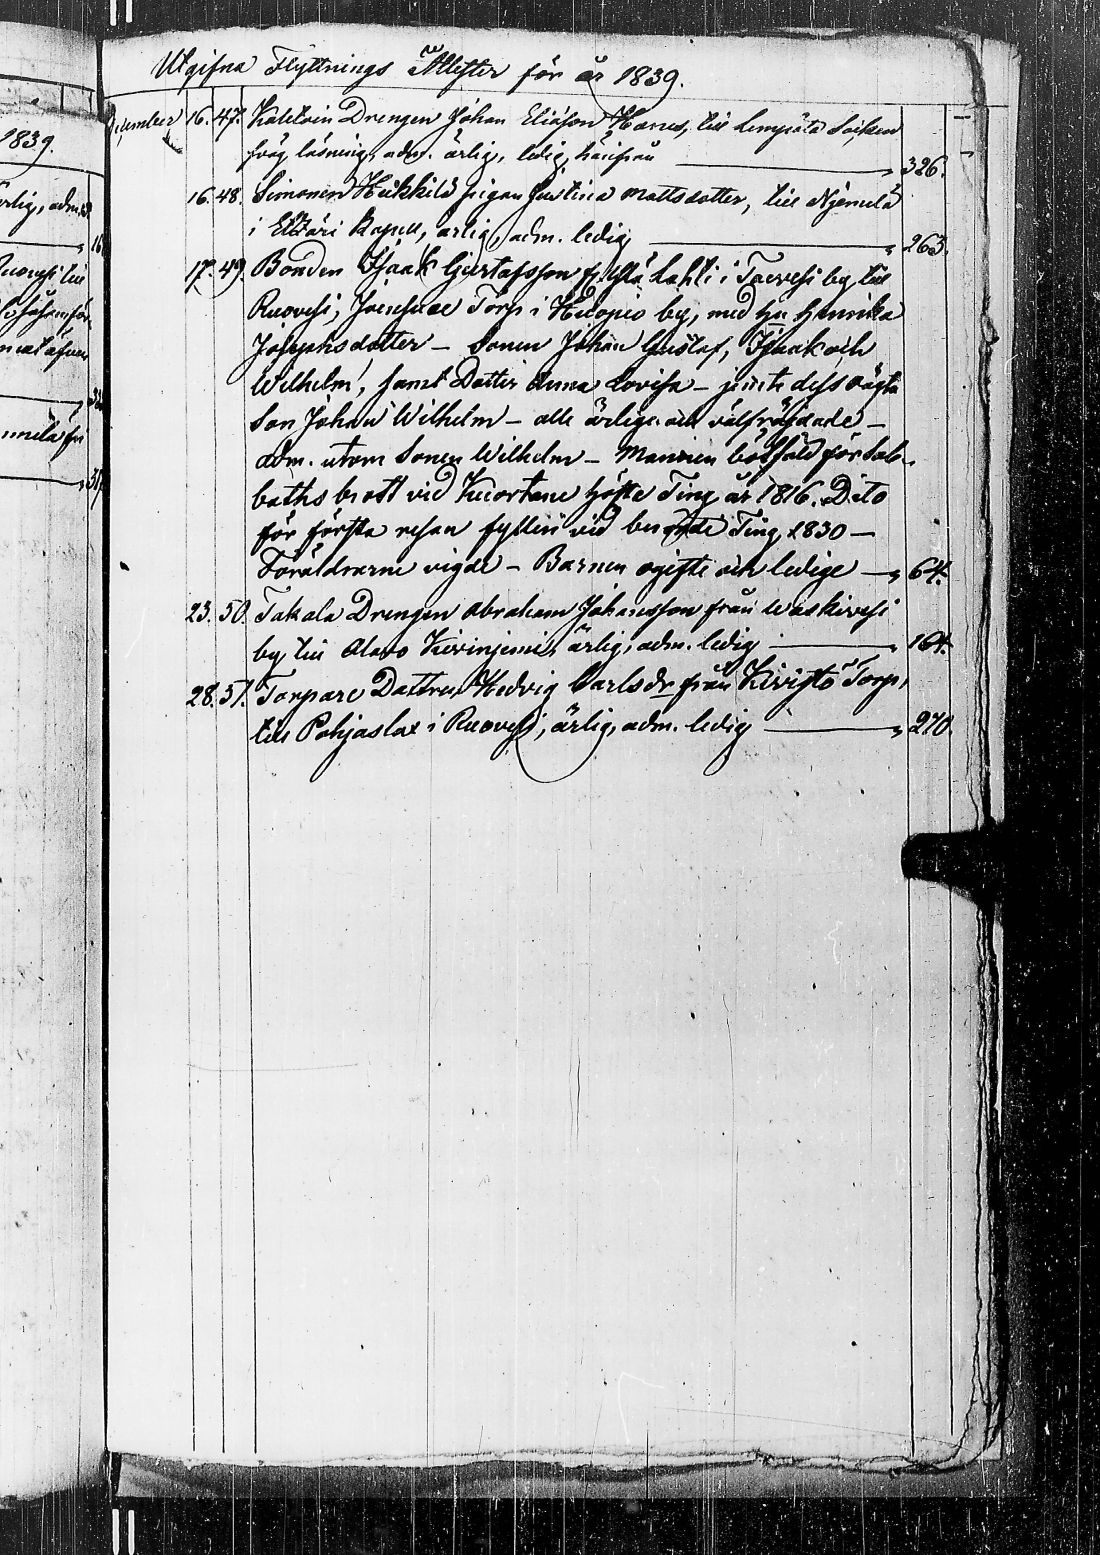 Utgifna Flyttnings Attester för år 1839.
December 16. 47. Drengen Johan Eliasson till Lempäla Socken
svag läsning, adm. ärlig, ledig, härifrån 326.
16. 48. Simonen Heikkilä pigan Justina Mattsdotter, till
i Etzäri Kapell, ärlig, adm. ledig 263.
17. 49. Bonden Isaak Gustafsson fr. Yli Lahti i by till
Ruovesi, Torp i by, med Hu Henrika
Josephsdotter – Sonen Johan Gustaf, Isaak och
Wilhelm, samt Dotter Anna Lovisa – jemte dess oägta
Son Johan Wilhelm – alle ärlige och välfräjdade –
adm. utom Sonen Wilhelm – Mannen bötfäld för Sab-
baths brott vid Kuortane Höste Ting år 1816. Dito
för första resan fylleri vid Ting 1830 –
Föräldrarne vigde – Barnen ogifte och ledige – 64.
23. 50. Takala Drengen Abraham Johansson från Waskivesi
by till Alavo ärlig, adm. ledig 164.
28. 51. Torpare Dottren Hedvig Carlsdr från Kivistö Torp,
till Pohjaslax i Ruovesi, ärlig, adm. ledig 270.
1839.
ärlig, adm.